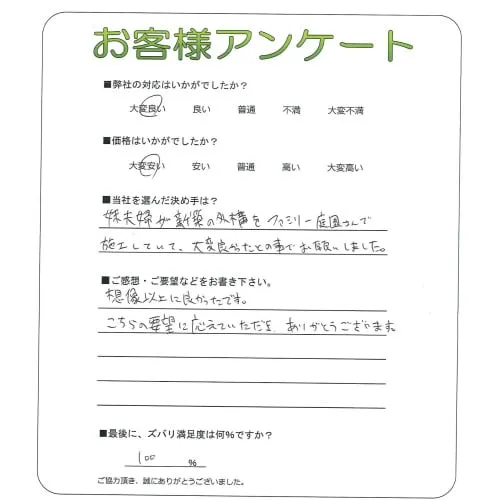 お客様アンケート
■弊社の対応はいかがでしたか？
大変良い 良い 普通 不満 大変不満
■価格はいかがでしたか？
大変安い 安い 普通 高い 大変高い
■当社を選んだ決め手は？
妹夫婦が新築の外構をファミリー庭園さんで
施工していて、大変良かったとの事でお願いしました。
■ご感想・ご要望などをお書き下さい。
想像以上に良かったです。
こちらの要望に応えていただき、ありがとうございます。
■最後に、ズバリ満足度は何％ですか？
100 %
ご協力頂き、誠にありがとうございました。